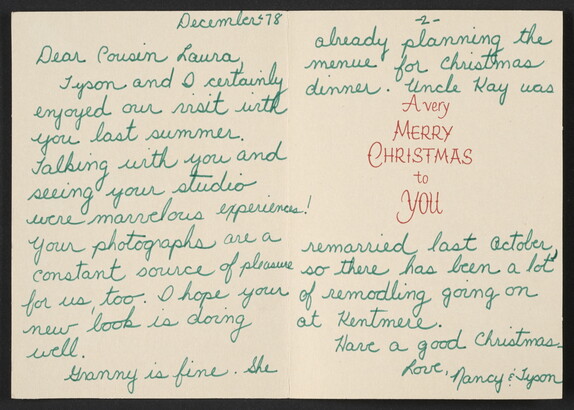 December '78
Dear Cousin Laura,
Tyson and I certainly
enjoyed our visit with
you last summer.
Talking with you and
seeing your studio
were marvelous experiences!
Your photographs are a
constant source of pleasure
for us, too. I hope your
new book is doing
well.
Granny is fine. She
-2-
already planning the
menue for Christmas
dinner. Uncle Kay was
A very
MERRY
CHRISTMAS
to
YOU
remarried last October,
so there has been a lot
of remodling going on
at Kentmere.
Have a good Christmas.
Love, Nancy & Tyson